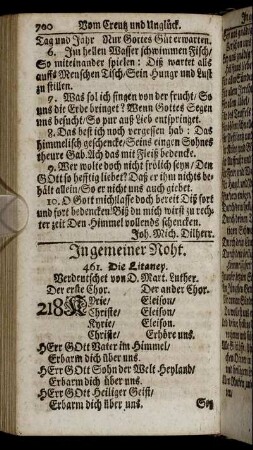 700 Vom Creutz und Unglück.
Tag und Jahr Nur Gottes Güt erwarten.
6. Im hellen Wasser schwimmen Fisch/
So miteinander spielen: Diß wartet alls
auffs Menschen Tisch/Sein Hungr und Lust
zu stillen.
7. Was sol ich singen von der frucht/So
uns die Erde bringet? Wenn Gottes Segen
uns besucht/So pur auß Lieb entspringet.
8. Das best ich noch vergessen hab: Das
himmelisch geschencke/Seins eingen Sohnes
theure Gab. Ach das mit Fleiß bedencke.
9. Wer wolte doch nicht frölich seyn/Den
GOtt so hefftig liebet? Daß er ihm nichts be-
hält allein/So er nicht uns auch giebet.
10. O Gott mich lasse doch bereit Diß fort
und fort bedencken! Biß du mich wirst zu rech-
ter zeit Den Himmel vollends schencken.
Joh. Mich. Dilherr.
In gemeiner Noht.
461. Die Litaney.
Verdeutschet von D. Mart. Luther.
Der erste Chor. Der ander Chor.
218 KYrie/ Eleison/
Christe/ Eleison/
Kyrie/ Eleison.
Christe/ Erhöre uns.
HErr GOtt Vater im Himmel/
Erbarm dich über uns.
HErr GOtt Sohn der Welt Heyland/
Erbarm dich über uns.
HErr GOtt Heiliger Geist/
Erbarm dich über uns. Sey